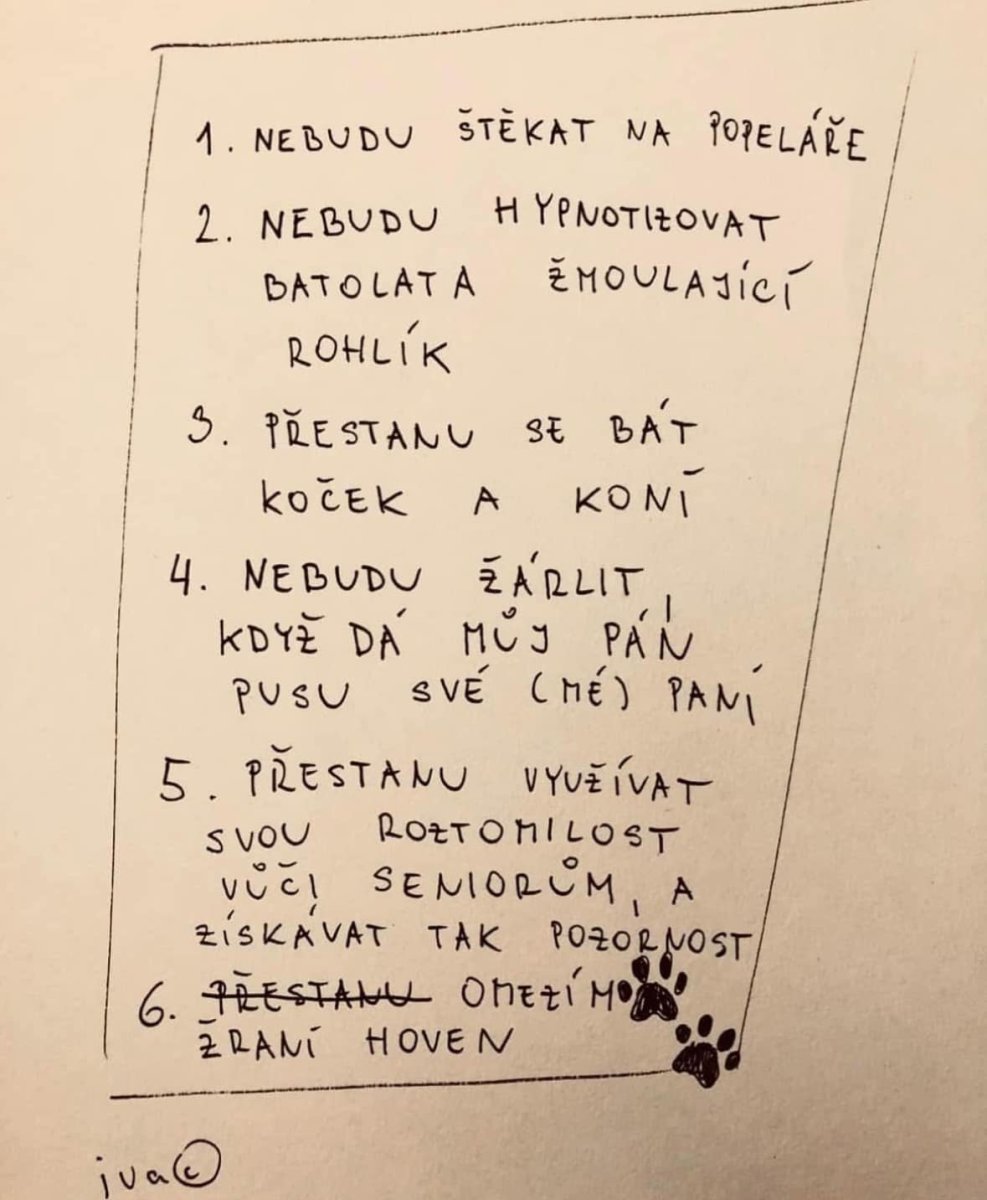 1. NEBUDU ŠTĚKAT NA POPELÁŘE
2. NEBUDU HYPNOTIZOVAT
BATOLATA ŽMOULAJÍCÍ
ROHLÍK
3. PŘESTANU SE BÁT
KOČEK A KONÍ
4. NEBUDU ŽÁRLIT,
KDYŽ DÁ MŮJ PÁN
PUSU SVÉ (MÉ) PANÍ
5. PŘESTANU VYUŽÍVAT
SVOU ROZTOMILOST
VŮČI SENIORŮM, A
ZÍSKÁVAT TAK POZORNOST
6. PŘESTANU OMEZÍM
ŽRANÍ HOVEN
iva©